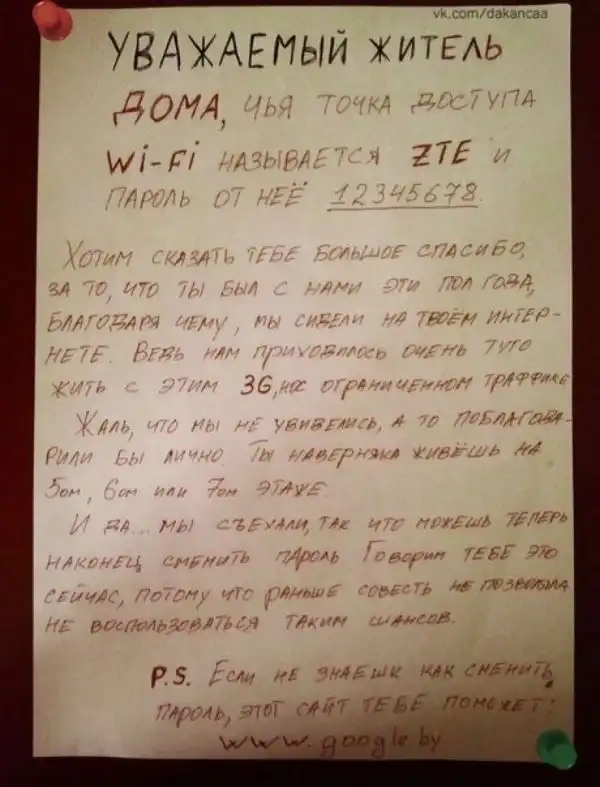 vk.com/dakancaa
УВАЖАЕМЫЙ ЖИТЕЛЬ
ДОМА, ЧЬЯ ТОЧКА ДОСТУПА
Wi-Fi НАЗЫВАЕТСЯ ZTE И
ПАРОЛЬ ОТ НЕЁ 12345678.
ХОТИМ СКАЗАТЬ ТЕБЕ БОЛЬШОЕ СПАСИБО,
ЗА ТО, ЧТО ТЫ БЫЛ С НАМИ ЭТИ ПОЛ ГОДА,
БЛАГОДАРЯ ЧЕМУ, МЫ СИДЕЛИ НА ТВОЁМ ИНТЕР-
НЕТЕ. ВЕДЬ НАМ ПРИХОДИЛОСЬ ОЧЕНЬ ТУГО
ЖИТЬ С ЭТИМ 3G, НА ОГРАНИЧЕННОМ ТРАФФИКЕ
ЖАЛЬ, ЧТО МЫ НЕ УВИДЕЛИСЬ, А ТО ПОБЛАГОДА-
РИЛИ БЫ ЛИЧНО. ТЫ НАВЕРНЯКА ЖИВЁШЬ НА
5ом, 6ом или 7ом ЭТАЖЕ.
И ДА... МЫ СЪЕХАЛИ, ТАК ЧТО МОЖЕШЬ ТЕПЕРЬ
НАКОНЕЦ СМЕНИТЬ ПАРОЛЬ ГОВОРИМ ТЕБЕ ЭТО
СЕЙЧАС, ПОТОМУ ЧТО РАНЬШЕ СОВЕСТЬ НЕ ПОЗВОЛЯЛА
НЕ ВОСПОЛЬЗОВАТЬСЯ ТАКИМ ШАНСОВ.
P.S. ЕСЛИ НЕ ЗНАЕШЬ КАК СМЕНИТЬ
ПАРОЛЬ, ЭТОТ САЙТ ТЕБЕ ПОМОЖЕТ:
www.google.by